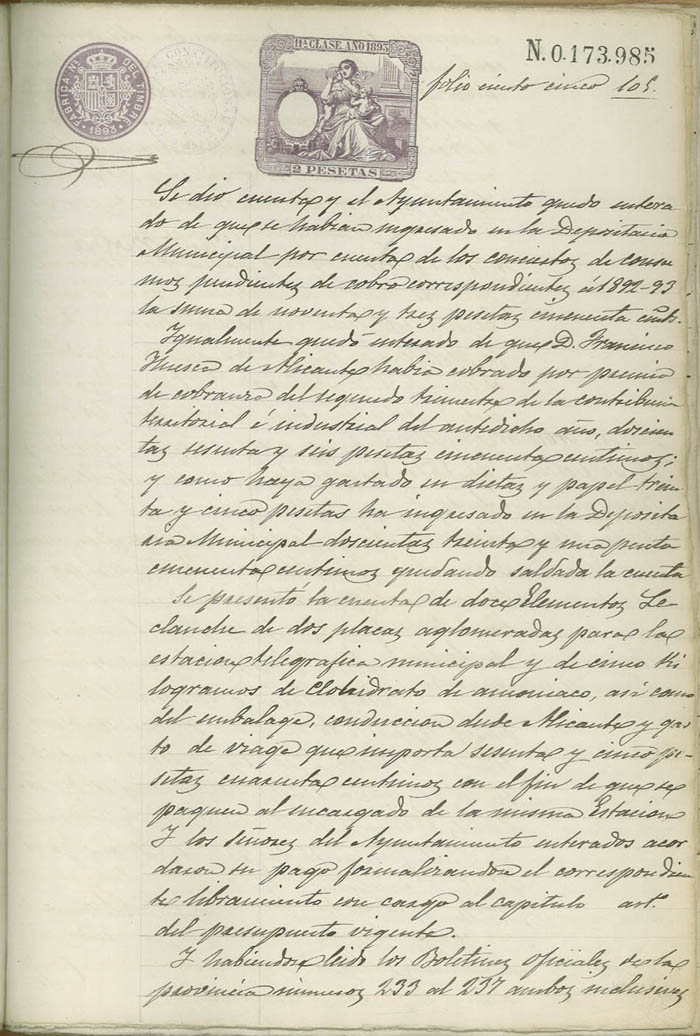 11ª CLASE, AÑO 1893
N. 0.173.985
FABRICA NAL. DEL TIMBRE
1893
CONSTITUCIONAL
2 PESETAS
folio ciento cinco 105.
Se dio cuenta y el Ayuntamiento quedo entera
do de que se habian ingresado en la Depositaria
Municipal por cuenta de los conciertos de consu
mos pendientes de cobro correspondientes á 1892-93
la suma de noventa y tres pesetas cincuenta cénts.
Igualmente quedó enterado de que D. Francisco
Huesca de Alicante habia cobrado por premio
de cobranza del segundo trimestre de la contribucion
territorial é industrial del antedicho año, doscien
tas sesenta y seis pesetas cincuenta centimos;
y como haya gastado en dietas y papel trein
ta y cinco pesetas ha ingresado en la Deposita
ria Municipal doscientas treinta y una peseta
cincuenta centimos quedando saldada la cuenta
Se presentó la cuenta de doce Elementos Le
clanche de dos placas aglomeradas para la
estacion telegrafica municipal y de cinco Ki
logramos de Clohidrato de amoniaco, asi como
del embalage, conduccion desde Alicante y gas
to de viage que importa sesenta y cinco pe-
setas cuarenta centimos con el fin de que se
paguen al encargado de la misma Estacion
Y los señores del Ayuntamiento enterados acor
daron su pago formalizandose el correspondien
te libramiento con cargo al capitulo art.º
del presupuesto vigente.
Y habiendose leido los Boletines oficiales de la
provincia numeros 233 al 237 ambos inclusives